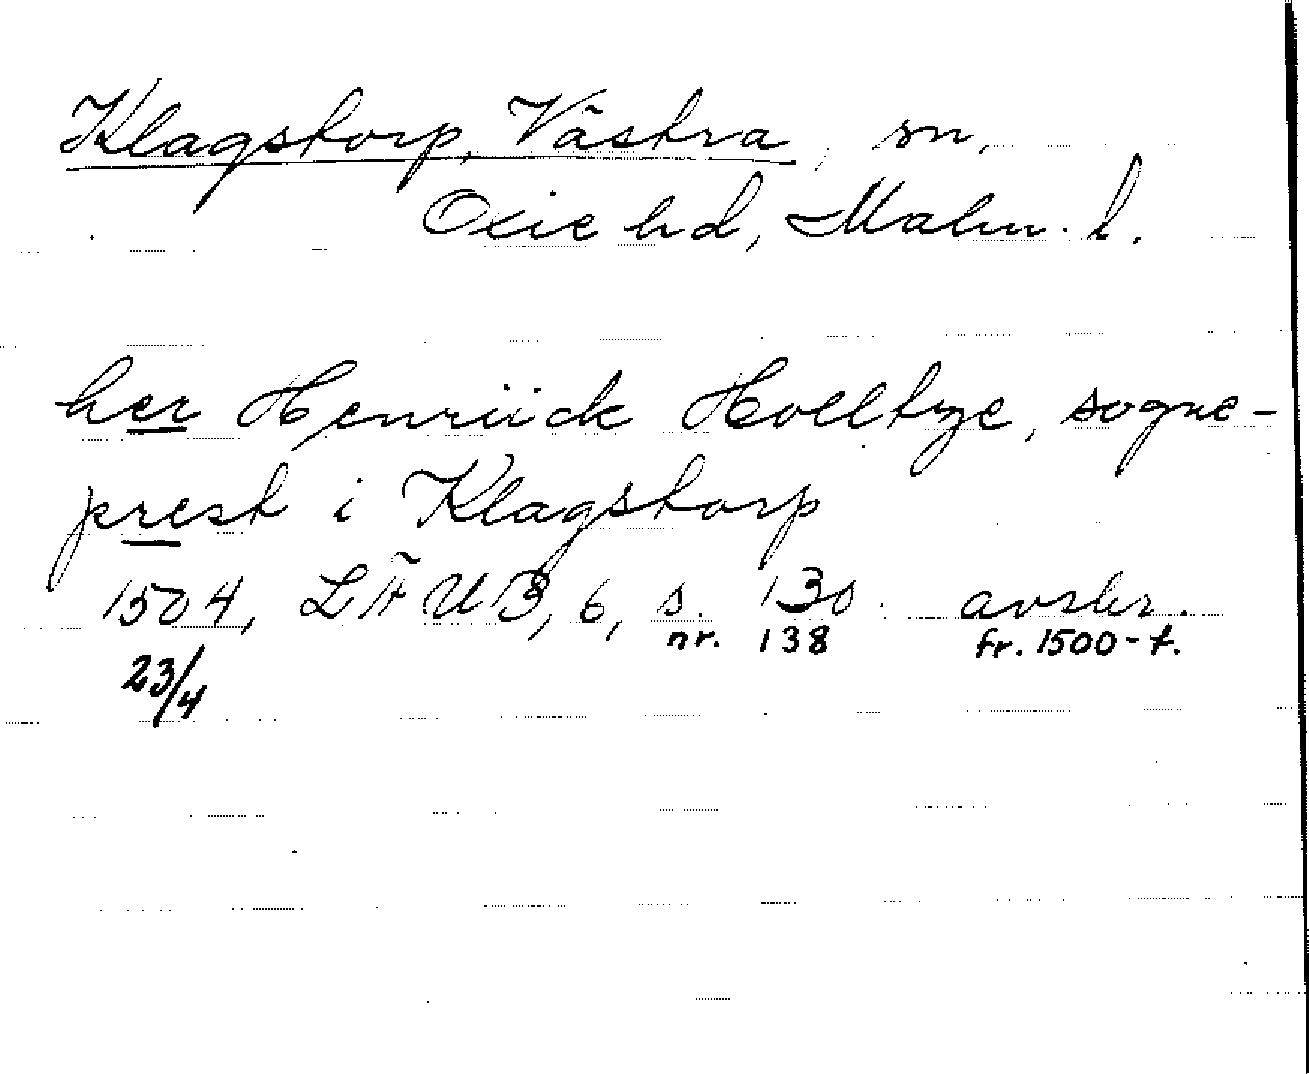 Klagstorp, Västra, sn,
Oxie hd, Malm. l.
her Henriick Hollbye, sogne-
prest i Klagstorp
1504, LÄUB, 6, s. 130. avskr.
nr. 138 fr. 1500-t.
23/4